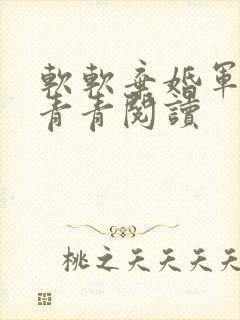 軟軟弃婚軍
青青閱讀
桃之夭夭夭夭